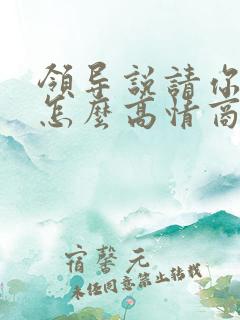 領导說請你
怎麼高情商
宿馨元
未经同意禁止转载